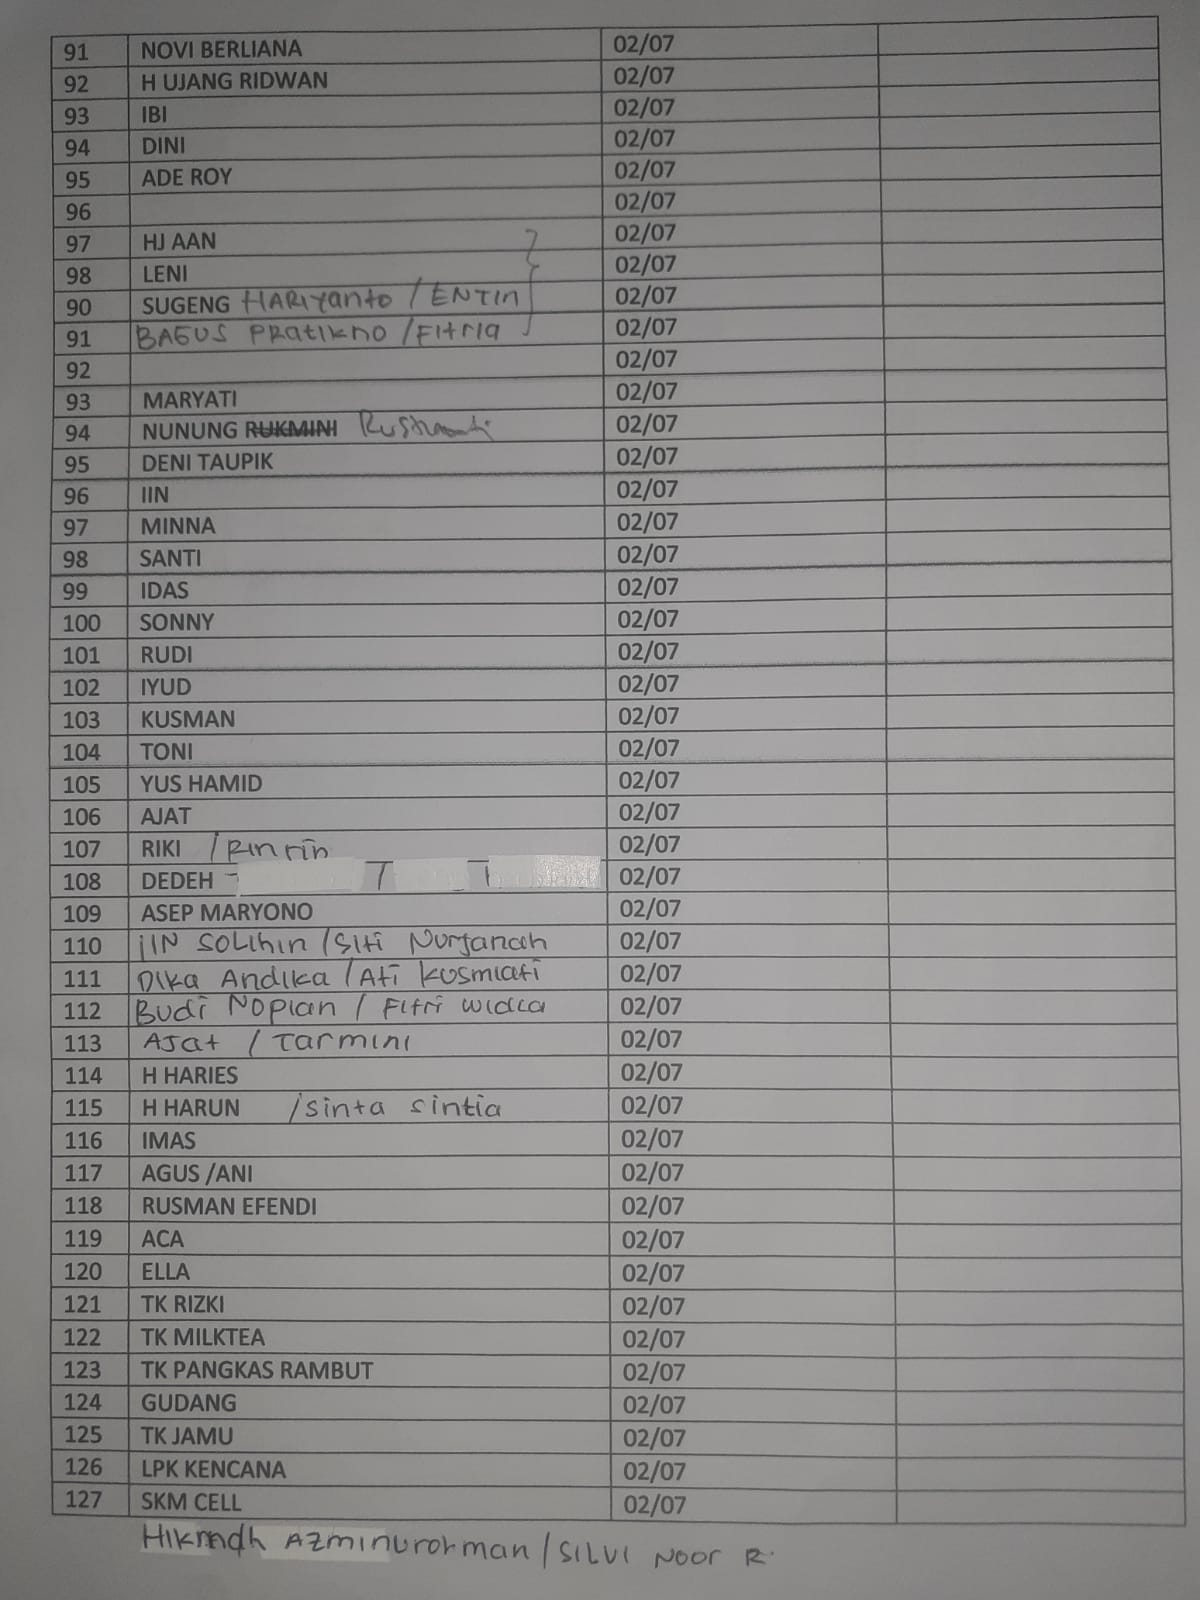 91 NOVI BERLIANA 02/07
92 H UJANG RIDWAN 02/07
93 IBI 02/07
94 DINI 02/07
95 ADE ROY 02/07
96 02/07
97 HJ AAN 02/07
98 LENI 02/07
90 SUGENG HARIYanto / ENTIn 02/07
91 BAGUS PRatIKNO / FItrIa 02/07
92 02/07
93 MARYATI 02/07
94 NUNUNG RUKMINI 02/07
95 DENI TAUPIK 02/07
96 IIN 02/07
97 MINNA 02/07
98 SANTI 02/07
99 IDAS 02/07
100 SONNY 02/07
101 RUDI 02/07
102 IYUD 02/07
103 KUSMAN 02/07
104 TONI 02/07
105 YUS HAMID 02/07
106 AJAT 02/07
107 RIKI / Rin rin 02/07
108 DEDEH 02/07
109 ASEP MARYONO 02/07
110 iIN SOLIhin / Siti Nurjanah 02/07
111 DIka AndIka / Ati kosmiati 02/07
112 Budi Nopian / Fitri widia 02/07
113 AJat / Tarmini 02/07
114 H HARIES 02/07
115 H HARUN / sinta sintia 02/07
116 IMAS 02/07
117 AGUS /ANI 02/07
118 RUSMAN EFENDI 02/07
119 ACA 02/07
120 ELLA 02/07
121 TK RIZKI 02/07
122 TK MILKTEA 02/07
123 TK PANGKAS RAMBUT 02/07
124 GUDANG 02/07
125 TK JAMU 02/07
126 LPK KENCANA 02/07
127 SKM CELL 02/07
HIKmah AZmINUrohman / SILVI NOOR R.